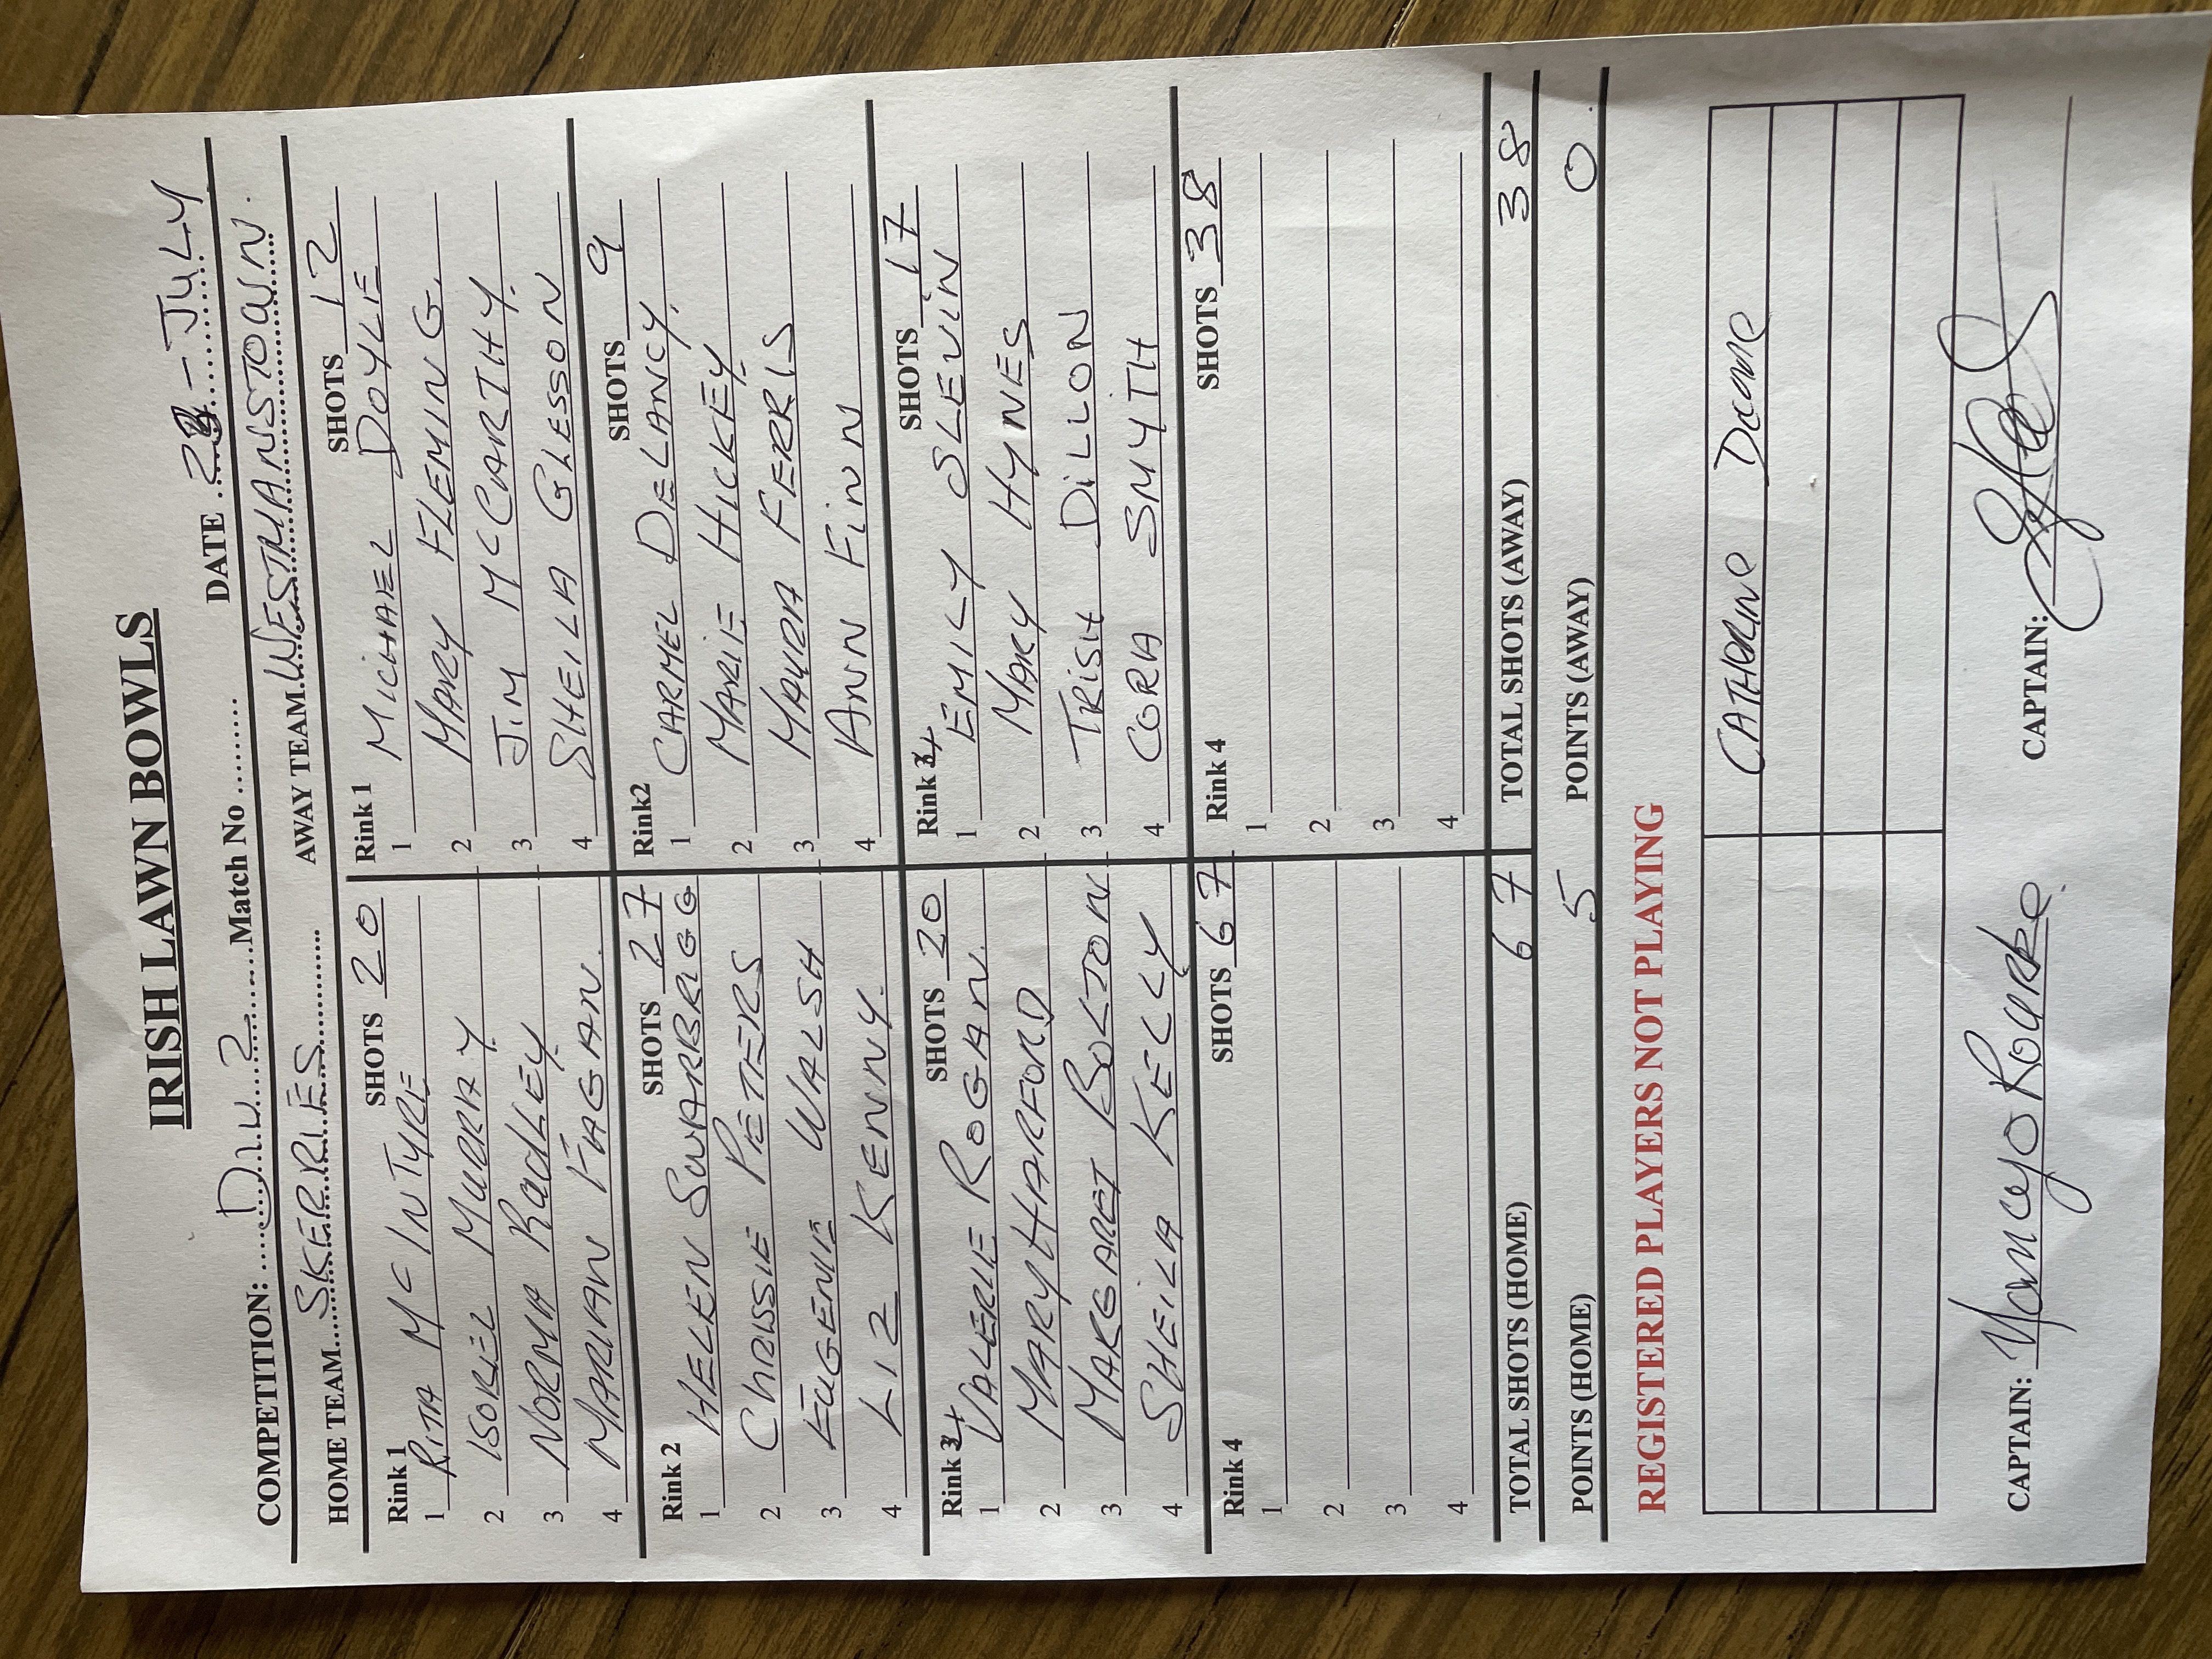 IRISH LAWN BOWLS
COMPETITION: Div 2 Match No DATE 2 - JULY
HOME TEAM SKERRIES AWAY TEAM WESTMANSTOWN.
Rink 1 SHOTS 20
1 RITA Mc INTYRE
2 ISOBEL MURRAY
3 NORMA RADLEY
4 MARIAN FAGAN.
Rink 1 SHOTS 12
1 MICHAEL DOYLE
2 MARY FLEMING.
3 JIM McCARTHY.
4 SHEILA GLESSON
Rink 2 SHOTS 27
1 HELEN SWARBRIGG
2 CHRISSIE PETERS
3 EUGENIE WALSH
4 LIZ KENNY.
Rink2 SHOTS 9
1 CARMEL DELANCY.
2 MARIE HICKEY.
3 MAURA FERRIS
4 ANN FINN
Rink 4 SHOTS 20
1 VALERIE ROGAN.
2 MARY HARFORD
3 MARGARET BOLTON
4 SHEILA KELLY
Rink 4 SHOTS 17
1 EMILY SLEVIN
2 MARY HYNES
3 TRISH DILLON
4 CORA SMYTH
Rink 4 SHOTS 67
1
2
3
4
Rink 4 SHOTS 38
1
2
3
4
TOTAL SHOTS (HOME) 67 TOTAL SHOTS (AWAY) 38
POINTS (HOME) 5 POINTS (AWAY) 0
REGISTERED PLAYERS NOT PLAYING
CATHERINE Doone
CAPTAIN: Nancy O Rourke. CAPTAIN: